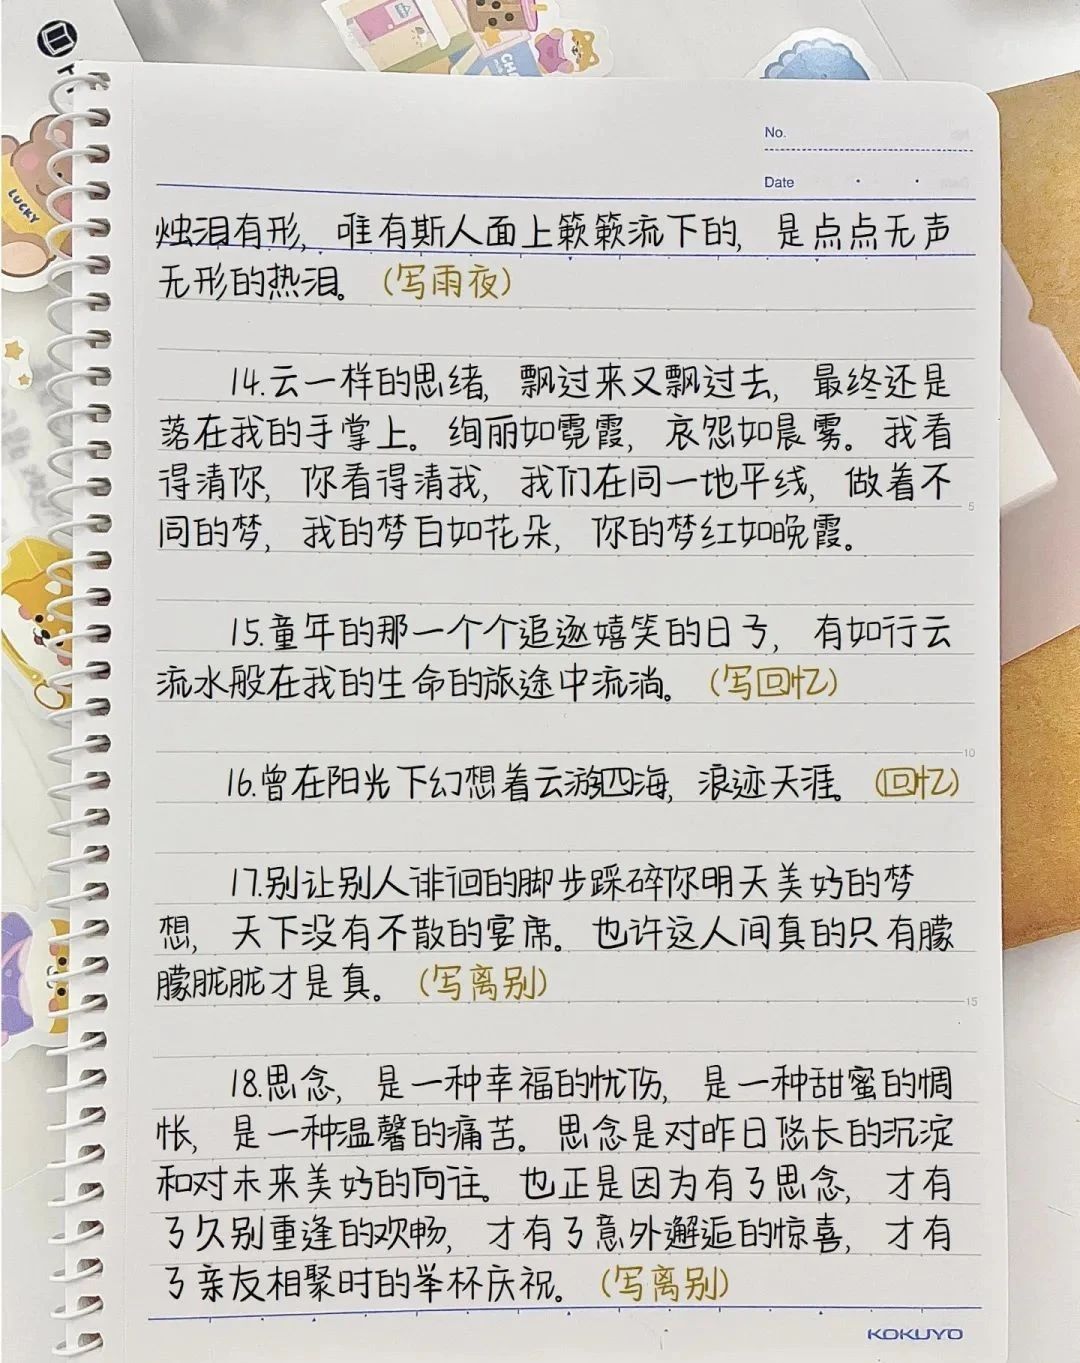 No.
Date
LUCKY
烛泪有形，唯有斯人面上簌簌流下的，是点点无声
无形的热泪。（写雨夜）
14.云一样的思绪，飘过来又飘过去，最终还是
落在我的手掌上。绚丽如霓霞，哀怨如晨雾。我看
得清你，你看得清我，我们在同一地平线，做着不
5
同的梦，我的梦白如花朵，你的梦红如晚霞。
15.童年的那一个个追逐嬉笑的日子，有如行云
流水般在我的生命的旅途中流淌。（写回忆）
10
16.曾在阳光下幻想着云游四海，浪迹天涯。（回忆）
17.别让别人徘徊的脚步踩碎你明天美好的梦
想，天下没有不散的宴席。也许这人间真的只有朦
朦胧胧才是真。（写离别）
15
18.思念，是一种幸福的忧伤，是一种甜蜜的惆
怅，是一种温馨的痛苦。思念是对昨日悠长的沉淀
和对未来美好的向往。也正是因为有了思念，才有
了久别重逢的欢畅，才有了意外邂逅的惊喜，才有
了亲友相聚时的举杯庆祝。（写离别）
KOKUYO